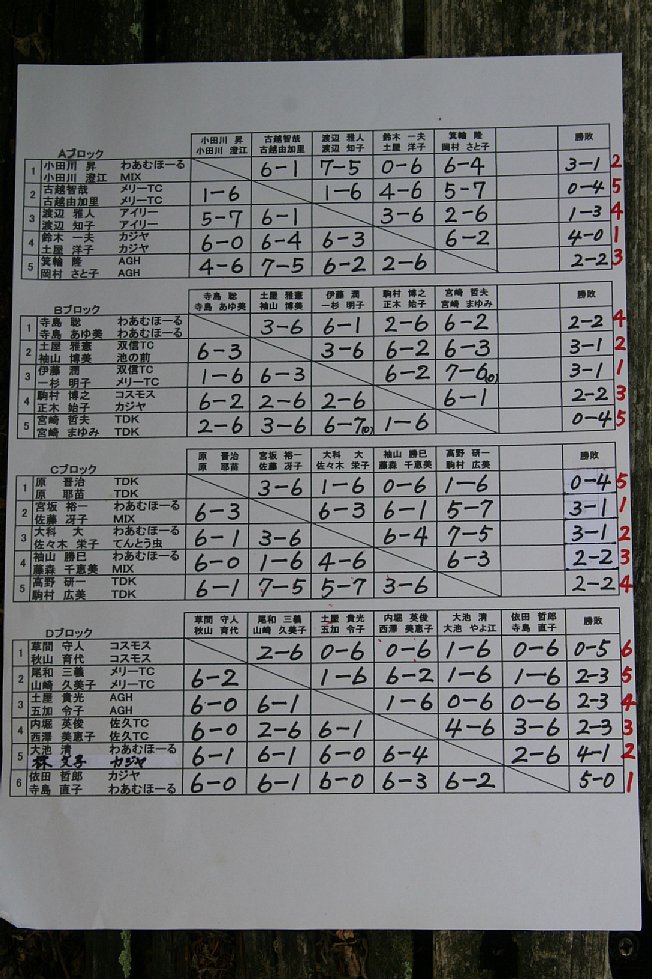 Aブロック 小田川 昇 古越智哉 渡辺 雅人 鈴木 一夫 箕輪 隆 勝敗
小田川 澄江 古越由加里 渡辺 知子 土屋 洋子 岡村 さと子
1 小田川 昇 わあむほーる 6-1 7-5 0-6 6-4 3-1 2
小田川 澄江 MIX
2 古越智哉 メリーTC 1-6 1-6 4-6 5-7 0-4 5
古越由加里 メリーTC
3 渡辺 雅人 アイリー 5-7 6-1 3-6 2-6 1-3 4
渡辺 知子 アイリー
4 鈴木 一夫 カジヤ 6-0 6-4 6-3 6-2 4-0 1
土屋 洋子 カジヤ
5 箕輪 隆 AGH 4-6 7-5 6-2 2-6 2-2 3
岡村 さと子 AGH
Bブロック 寺島 聡 土屋 雅憲 伊藤 潤 駒村 博之 宮崎 哲夫 勝敗
寺島 あゆ美 袖山 博美 一杉 明子 正木 始子 宮崎 まゆみ
1 寺島 聡 わあむほーる 3-6 6-1 2-6 6-2 2-2 4
寺島 あゆ美 わあむほーる
2 土屋 雅憲 双信TC 6-3 3-6 6-2 6-3 3-1 2
袖山 博美 池の前
3 伊藤 潤 双信TC 1-6 6-3 6-2 7-6(0) 3-1 1
一杉 明子 メリーTC
4 駒村 博之 コスモス 6-2 2-6 2-6 6-1 2-2 3
正木 始子 カジヤ
5 宮崎 哲夫 TDK 2-6 3-6 6-7(0) 1-6 0-4 5
宮崎 まゆみ TDK
Cブロック 原 晋治 宮坂 裕一 大科 大 袖山 勝巳 高野 研一 勝敗
原 耶苗 佐藤 冴子 佐々木 栄子 藤森 千恵美 駒村 広美
1 原 晋治 TDK 3-6 1-6 0-6 1-6 0-4 5
原 耶苗 TDK
2 宮坂 裕一 わあむほーる 6-3 6-3 6-1 5-7 3-1 1
佐藤 冴子 MIX
3 大科 大 わあむほーる 6-1 3-6 6-4 7-5 3-1 2
佐々木 栄子 てんとう虫
4 袖山 勝巳 わあむほーる 6-0 1-6 4-6 6-3 2-2 3
藤森 千恵美 MIX
5 高野 研一 TDK 6-1 7-5 5-7 3-6 2-2 4
駒村 広美 TDK
Dブロック 草間 守人 尾和 三義 土屋 貴光 内堀 英俊 大池 清 依田 哲郎 勝敗
秋山 育代 山崎 久美子 五加 令子 西澤 美恵子 大池 やよ江 寺島 直子
1 草間 守人 コスモス 2-6 0-6 0-6 1-6 0-6 0-5 6
秋山 育代 コスモス
2 尾和 三義 メリーTC 6-2 1-6 6-2 1-6 1-6 2-3 5
山崎 久美子 メリーTC
3 土屋 貴光 AGH 6-0 6-1 1-6 0-6 0-6 2-3 4
五加 令子 AGH
4 内堀 英俊 佐久TC 6-0 2-6 6-1 4-6 3-6 2-3 3
西澤 美恵子 佐久TC
5 大池 清 わあむほーる 6-1 6-1 6-0 6-4 2-6 4-1 2
林 文子 カジヤ
6 依田 哲郎 カジヤ 6-0 6-1 6-0 6-3 6-2 5-0 1
寺島 直子 わあむほーる